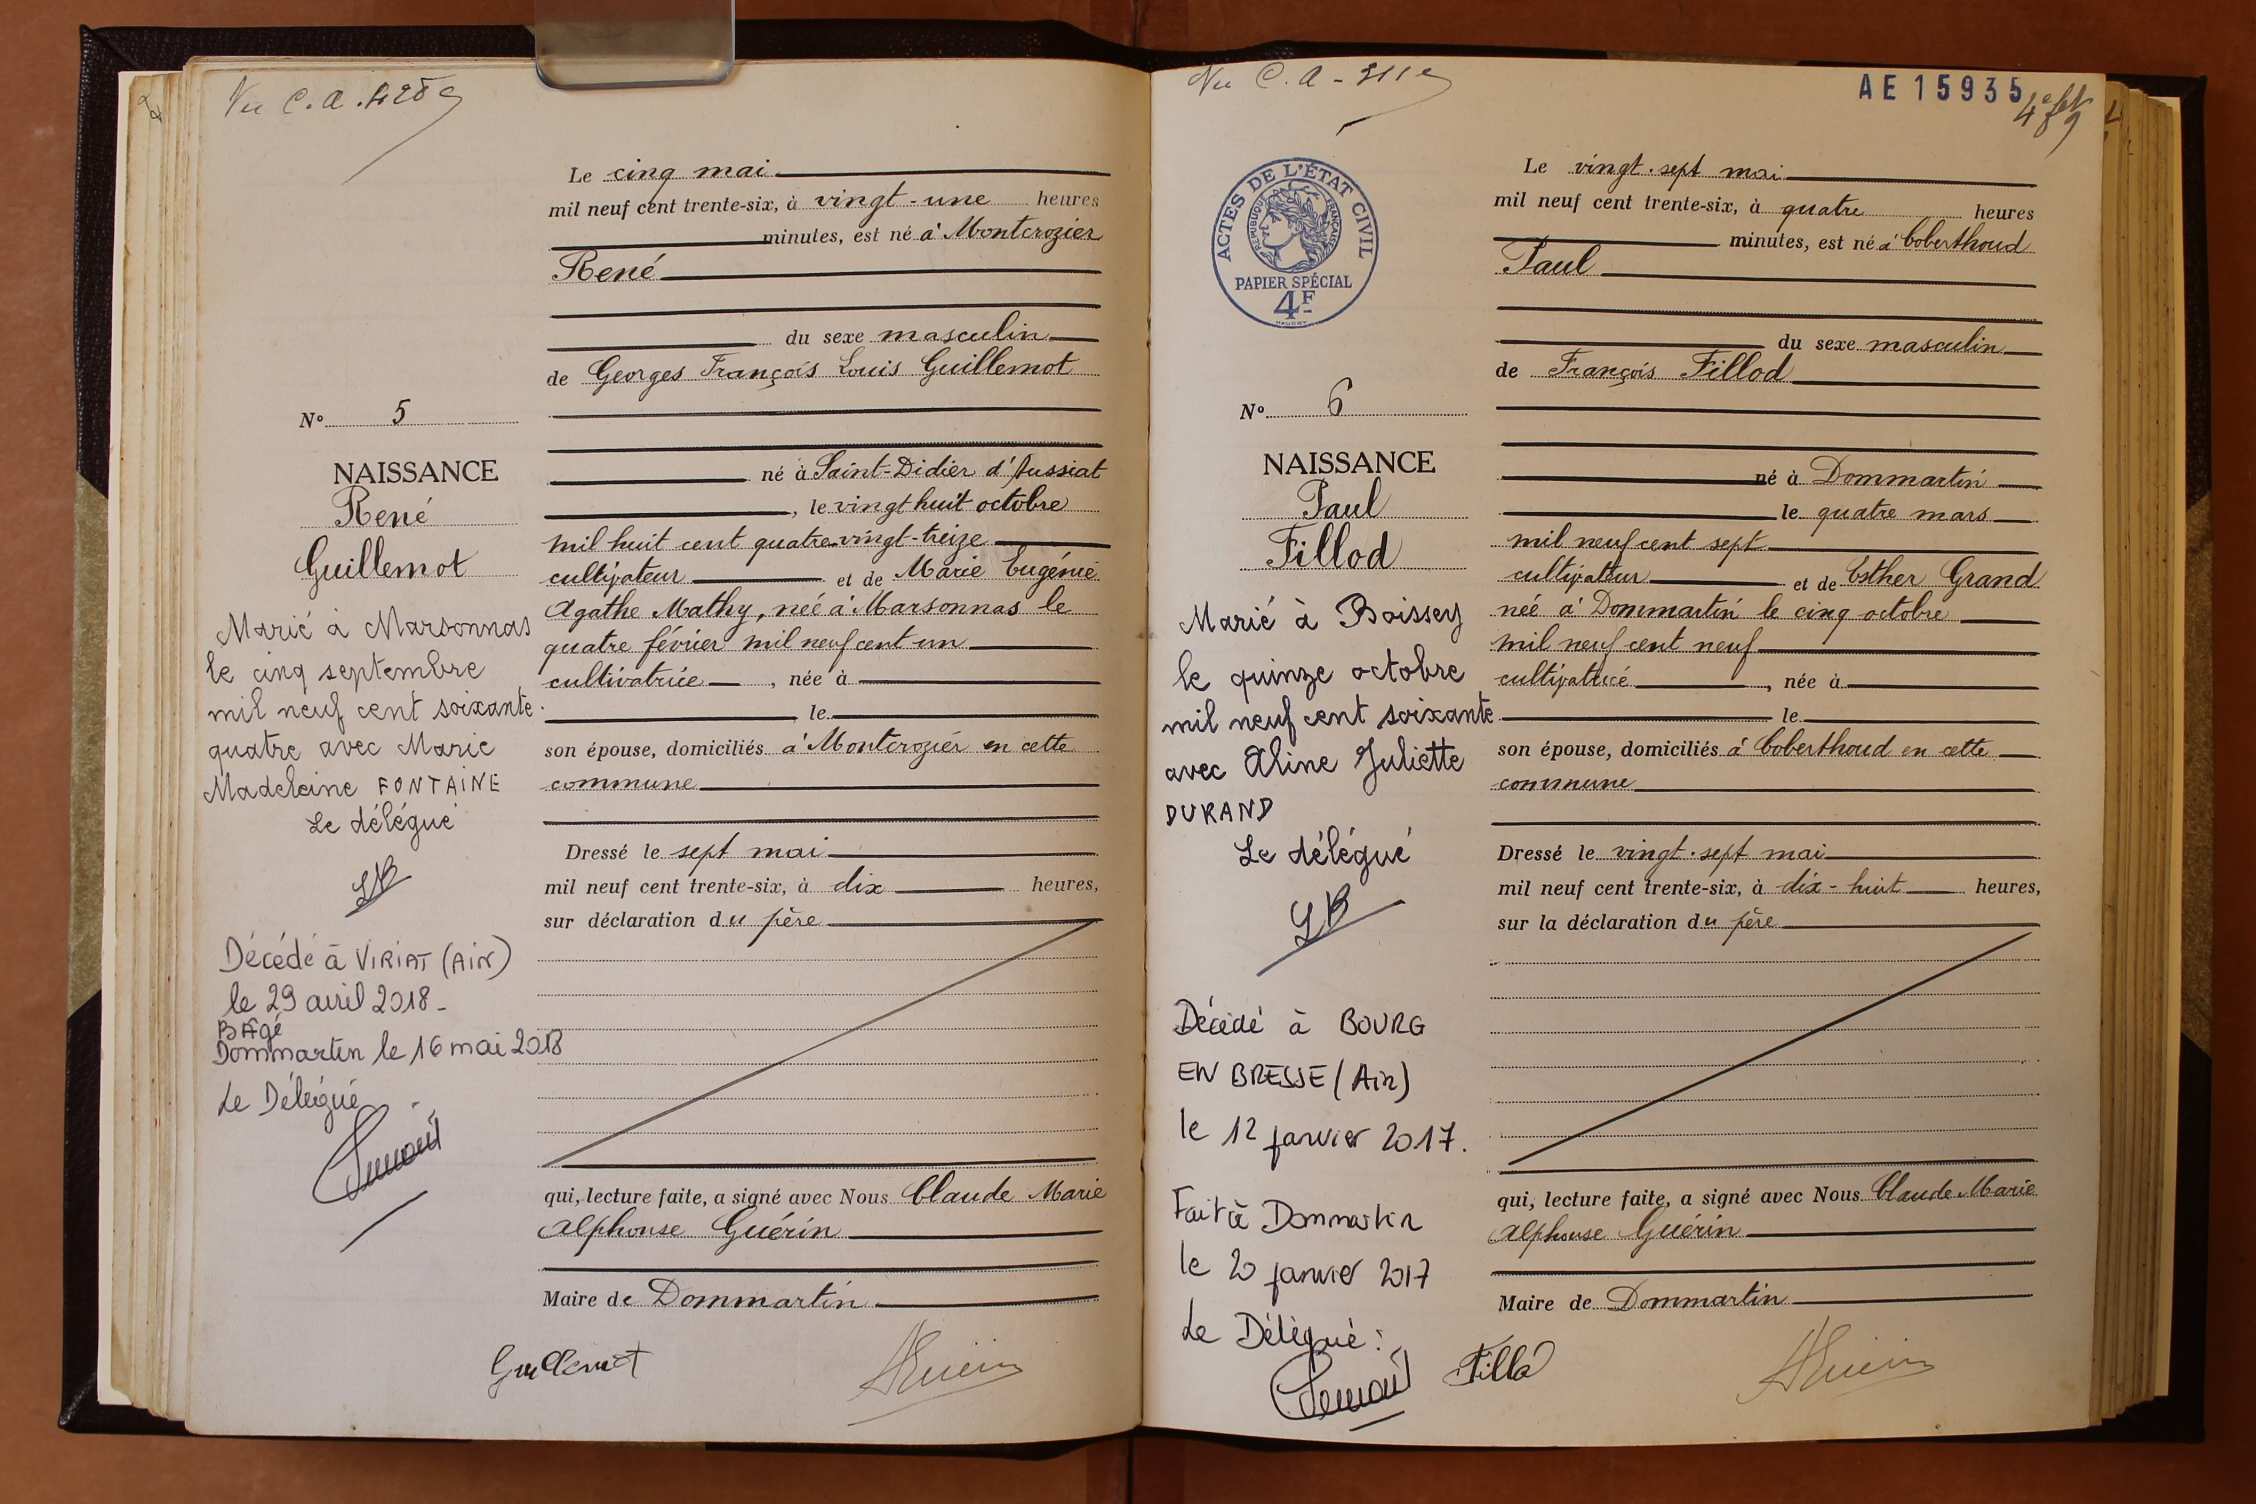 Vu C.A.
Le cinq mai
mil neuf cent trente-six, à vingt-une heures
minutes, est né à Montcrozier
René
du sexe masculin
de Georges François Louis Guillemot
né à Saint-Didier d'Aussiat
, le vingt huit octobre
mil huit cent quatre-vingt-treize
cultivateur et de Marie Eugénie
Agathe Mathy, née à Marsonnas le
quatre février mil neuf cent un
cultivatrice , née à
le
son épouse, domiciliés à Montcrozier en cette
commune
Dressé le sept mai
mil neuf cent trente-six, à dix heures,
sur déclaration du père
qui, lecture faite, a signé avec Nous Claude Marie
Alphonse Guérin
Maire de Dommartin
Guillemot
AGuérin
No 5
NAISSANCE
René
Guillemot
Marié à Marsonnas
le cinq septembre
mil neuf cent soixante
quatre avec Marie
Madeleine FONTAINE
Le délégué
Décédé à VIRIAT (Ain)
le 29 avril 2018-
BAgé
Dommartin le 16 mai 2018
Le Délégué
Vu C.A -
AE15935
ACTES DE L'ÉTAT CIVIL
RÉPUBLIQUE FRANÇAISE
PAPIER SPÉCIAL
4F
Le vingt-sept mai
mil neuf cent trente-six, à quatre heures
minutes, est né à Coberthoud
Paul
du sexe masculin
de François Fillod
né à Dommartin
le quatre mars
mil neuf cent sept
cultivateur et de Esther Grand
née à Dommartin le cinq octobre
mil neuf cent neuf
cultivatrice , née à
le
son épouse, domiciliés à Coberthoud en cette
commune
Dressé le vingt-sept mai
mil neuf cent trente-six, à dix-huit heures,
sur la déclaration du père
qui, lecture faite, a signé avec Nous Claude Marie
Alphonse Guérin
Maire de Dommartin
Fillod
AGuérin
No 6
NAISSANCE
Paul
Fillod
Marié à Boissey
le quinze octobre
mil neuf cent soixante
avec Aline Juliette
DURAND
Le délégué
Décédé à BOURG
EN BRESSE (Ain)
le 12 janvier 2017.
Fait à Dommartin
le 20 janvier 2017
Le Délégué :